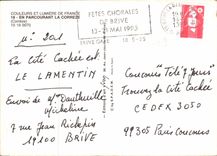 COULEURS ET LUMIÈRE DE FRANCE
19 - EN PARCOURANT LA CORREZE
(Corrèze)
FETES CHORALES
DE BRIVE
13-21 MAI 1993
N° 201
La Cité Cachée est
LE LAMENTIN
Envoi de Mme Dautheville
Micheline
7 rue Jean Richepin
19100 BRIVE
Concours "Télé 7 Jours"
Trouvez la cité cachée
CEDEX 3050
99305 Paris Concours